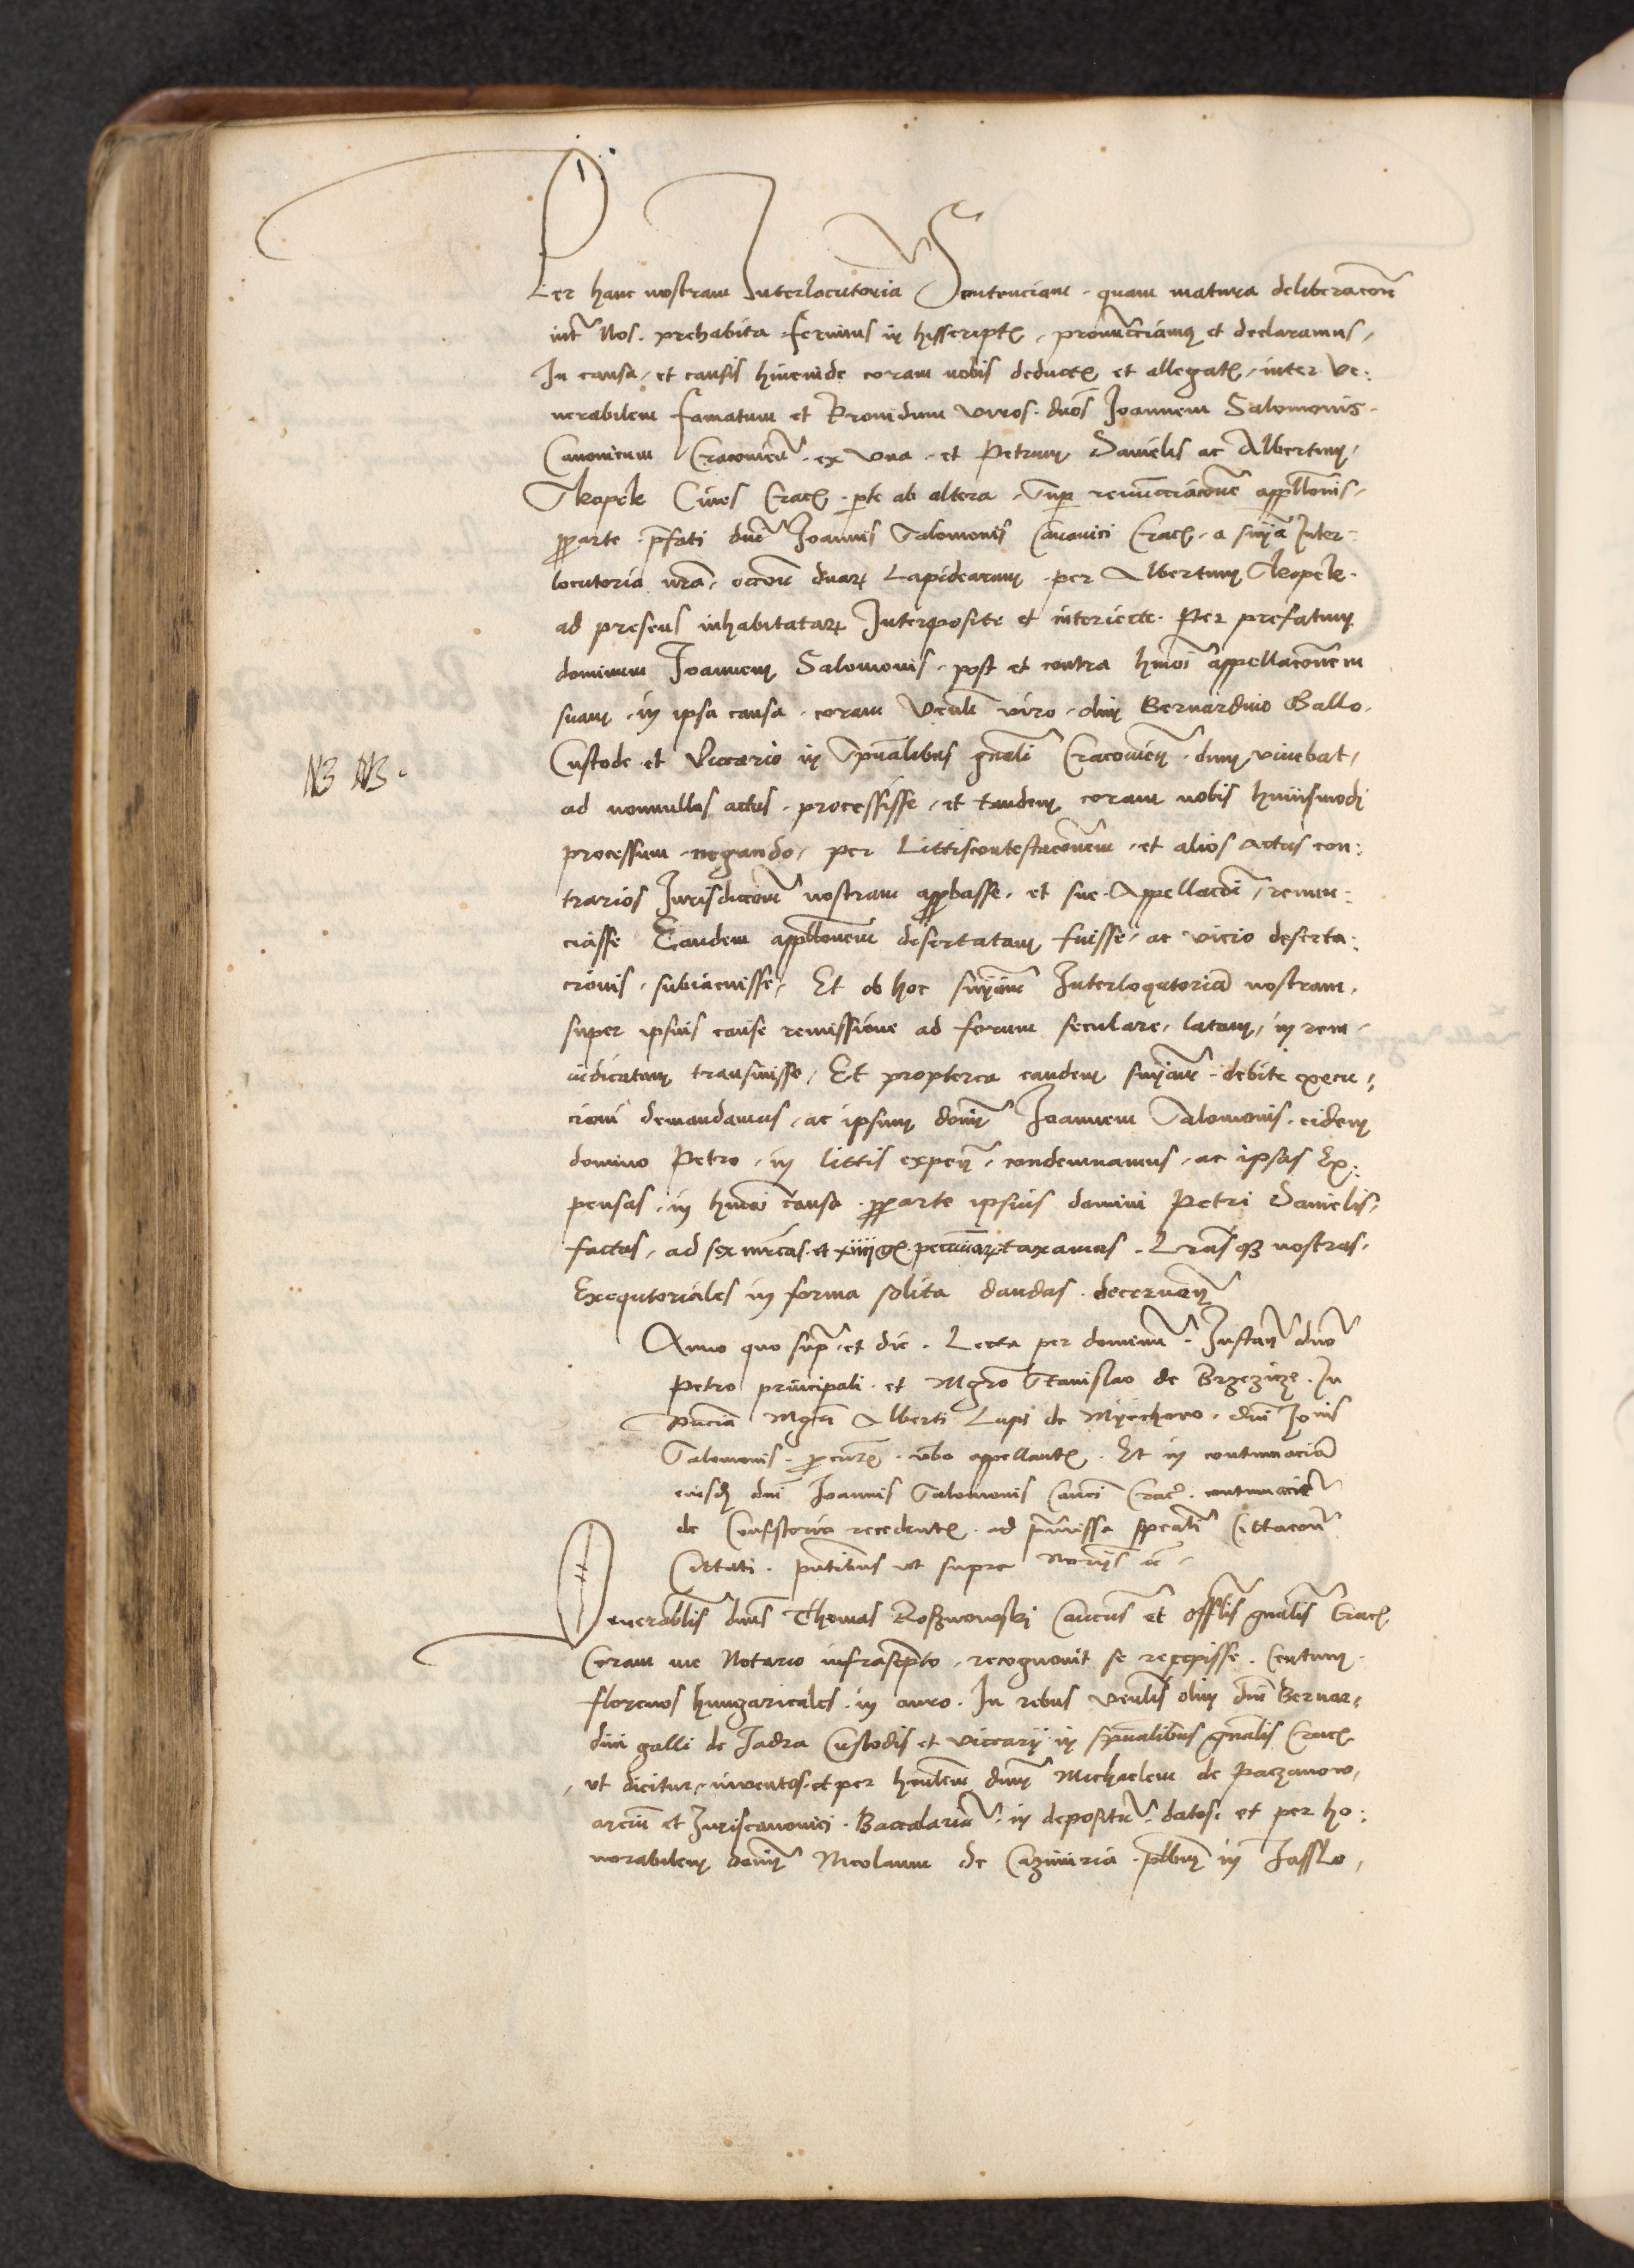 Per hanc nostram Interlocutoria Sentenciam · quam matura deliberacone
int Nos · prehabita ferimus in hijsscriptis, pronuncciamus et declaramus,
In causa, et causis hincinde coram nobis deductis et allegatis, inter ve:
nerabilem famatum et Providum viros · dnos Joannem Salomonis ·
Canonicum Cracovien · ex una · et Petrum Danielis ac Albertum,
Skopek Cives Crac · pte ab altera · Sup renuncciacone appllonis,
pparte · pfati dni Joannis Salomonis Canonici Crac · a snia Inter:
locutoria nra, occone duar Lapidearum · per Albertum Skopek ·
ad presens inhabitatar Interposite et interiecte · Per prefatum
dominum Joannem Salomonis · post et contra hmoi appellaconem
suam · in ipsa causa · coram Venli viro · olim Bernardino Gallo ·
Custode et Viccario in Spualibus gnali Cracovien · dum vivebat,
NB NB ·
ad nonnullos actus · processisse, et tandem coram nobis huiusmodi
processum · negando, per Littiscontestaconem · et alios actus con:
trarios Jurisdiccom nostram appbasse · et sue Appellacoi, renun:
ciasse Eandem appllonem desertatam fuisse, ac vicio deserta:
cionis · subiacuisse, Et ob hoc sniam Interloqutoria nostram,
super ipsius cause remissione ad forum seculare, latam, in rem ·
iudicatam transiuisse, Et propterea eandem sniam · debite execu:
cioni demandamus, ac ipsum dominum Joannem Salomonis · eidem
domino Petro, in littis expen · condemnamus, ac ipsas Ex:
pensas, in hmoi causa · pparte ipsius domini Petri Danielis,
factas, ad sex mrcas · et xiiij gr · peccuniar taxamus · Lras qz nostras,
Exequtoriales in forma solita dandas · decernen
Anno quo supra et die · Lecta per dominum · Instan dno
Petro principali · et Mgro Stanislao de Brzezicze · In
pncia Mgri Alberti Lupi de Myechow · dni Jonis
Salomonis · pcuris · vbo appellantis · Et in contumacia
eiusd dni Joannis Salomonis Canci Crac · contumacit
de Consistorio recedentis · ad pmissa spealit Cittacon
Cittati · pntibus ut supra Norijs ac ·
Venerablis dnus Thomas Rosznowski Cancus et Offlis gnalis Crac
Coram me Notario infrascpto, recognovit se recepisse · Centum ·
florenos hungaricales · in auro · In rebus venlis olim dni Bernar:
dini galli de Jadra Custodis et viccarij in spualibus gnalis Crac
, ut dicitur, inventos · et per honblem dnum Michaelem de Paczanow,
arcium et Juriscanonici · Baccalarium · in depositum · datos · et per ho:
norabilem dominum Nicolaum de Cazimiria · plbnum in Jasslo,